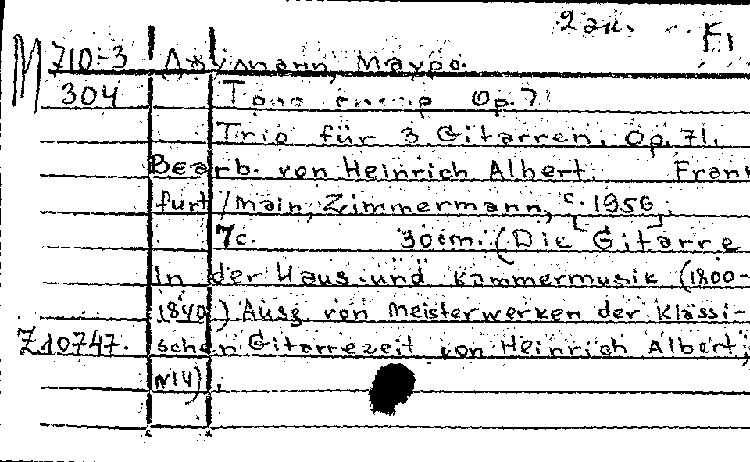 2 эк.
М 710-3 Джулиани, Мауро.
304 Трио гитар Op. 71
Trio für 3 Gitarren. Op. 71.
Bearb. von Heinrich Albert. Frank
furt/Main, Zimmermann, c. [1956].
7 c. 30 cm. (Die Gitarre
in der Haus- und Kammermusik (1800-
1840) Ausg von Meisterwerken der Klassi-
Z10747. schen Gitarrezeit von Heinrich Albert,
N14).